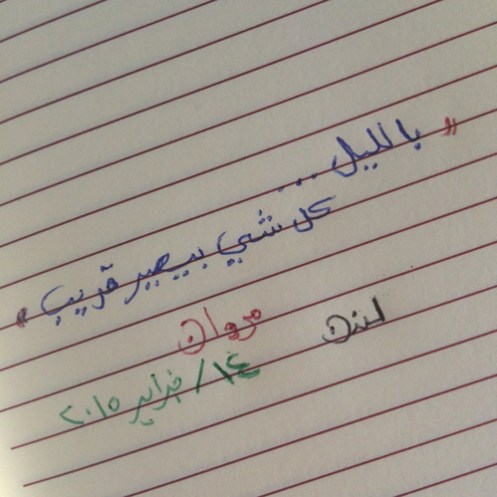 "بالليل...
كل شي بيصير قريب"
مروان لندن
١٤/فبراير ٢٠١٥